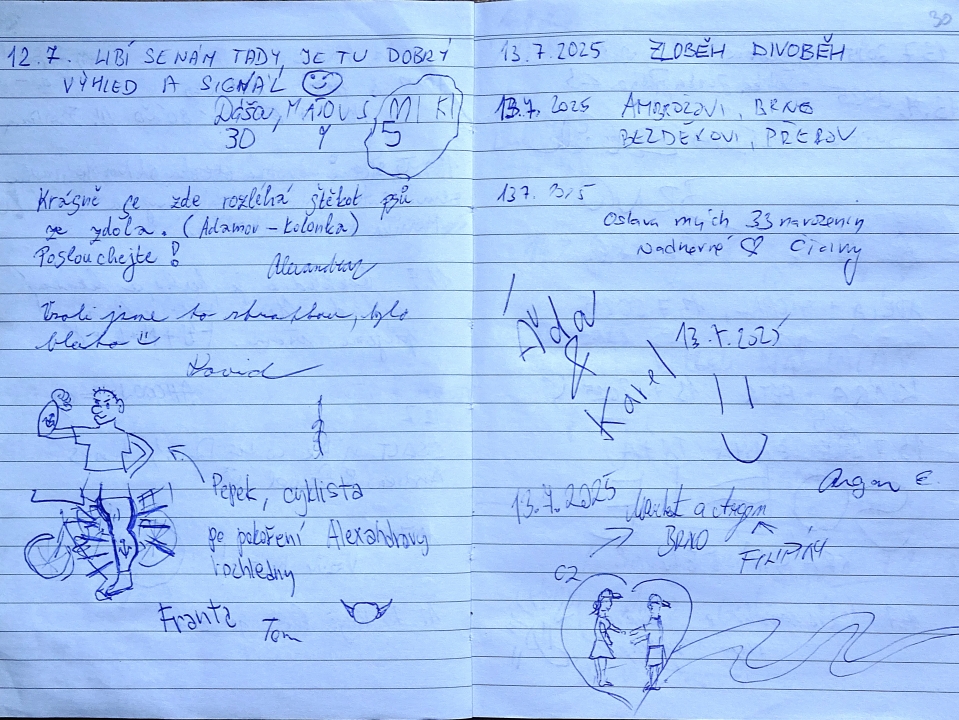 12.7. LIBÍ SE NÁM TADY, JE TU DOBRÝ
VÝHLED A SIGNÁL
Dáša, MATOUŠ, MIKI
30 9 5
Krásně se zde rozléhá štěkot psů
ze zdola. (Adamov - Kolonka)
Poslouchejte!
Alexandra
Vzali jsme to zkratkou, bylo
bláto
David
Pepek, cyklista
po pokoření Alexandrovy
rozhledny
Franta
Tom
30
13.7.2025 ZLOBĚH DIVOBĚH
13.7.2025 AMBROŽOVI, BRNO
BEZDĚKOVI, PŘEROV
13.7.
Oslava mých 33 narozenin
Nadherné
&
Karel
13.7.2025
13.7.2025
a
BRNO
FILIPÍNY
CZ